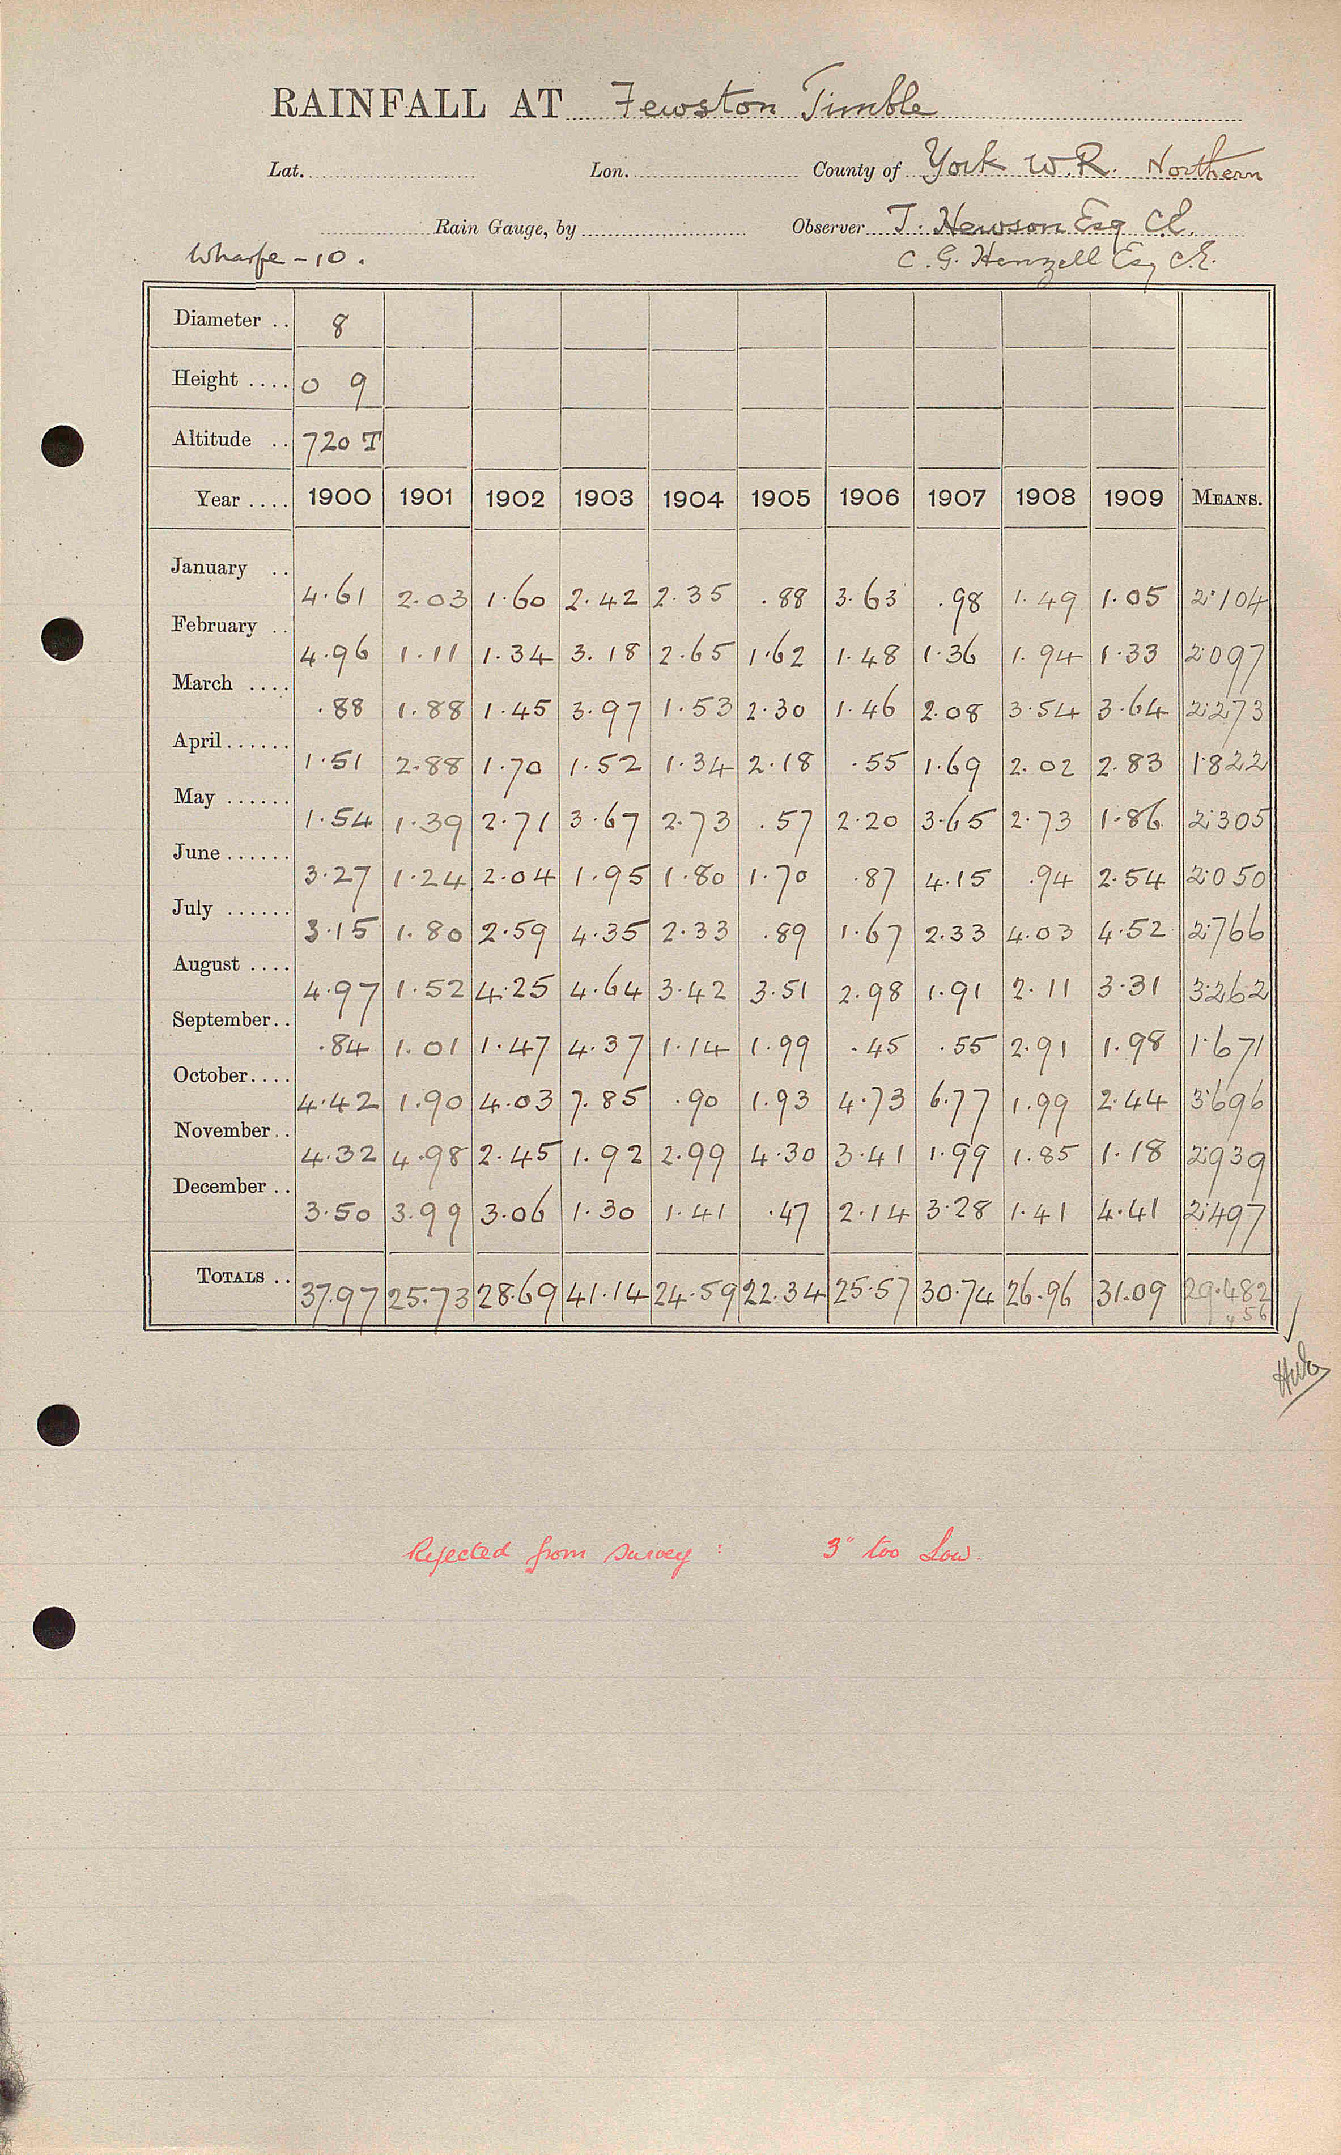 RAINFALL AT Fewston Timble
Lat. Lon. County of York W.R. Northern
Rain Gauge, by Observer T. Newson Esq C.E.
Wharfe - 10. C. G. Henzell Esq C.E.
Diameter .. 8
Height .... 0 9
Altitude .. 720 T
Year .... 1900 1901 1902 1903 1904 1905 1906 1907 1908 1909 MEANS.
January .. 4.61 2.03 1.60 2.42 2.35 .88 3.63 .98 1.49 1.05 2.104
February .. 4.96 1.11 1.34 3.18 2.65 1.62 1.48 1.36 1.94 1.33 2.097
March .... .88 1.88 1.45 3.97 1.53 2.30 1.46 2.08 3.54 3.64 2.273
April...... 1.51 2.88 1.70 1.52 1.34 2.18 .55 1.69 2.02 2.83 1.822
May ...... 1.54 1.39 2.71 3.67 2.73 .57 2.20 3.65 2.73 1.86 2.305
June...... 3.27 1.24 2.04 1.95 1.80 1.70 .87 4.15 .94 2.54 2.050
July ...... 3.15 1.80 2.59 4.35 2.33 .89 1.67 2.33 4.03 4.52 2.766
August .... 4.97 1.52 4.25 4.64 3.42 3.51 2.98 1.91 2.11 3.31 3.262
September.. .84 1.01 1.47 4.37 1.14 1.99 .45 .55 2.91 1.98 1.671
October.... 4.42 1.90 4.03 7.85 .90 1.93 4.73 6.77 1.99 2.44 3.696
November.. 4.32 4.98 2.45 1.92 2.99 4.30 3.41 1.99 1.85 1.18 2.939
December .. 3.50 3.99 3.06 1.30 1.41 .47 2.14 3.28 1.41 4.41 2.497
TOTALS .. 37.97 25.73 28.69 41.14 24.59 22.34 25.57 30.74 26.96 31.09 29.482
Rejected from survey : 3" too low.